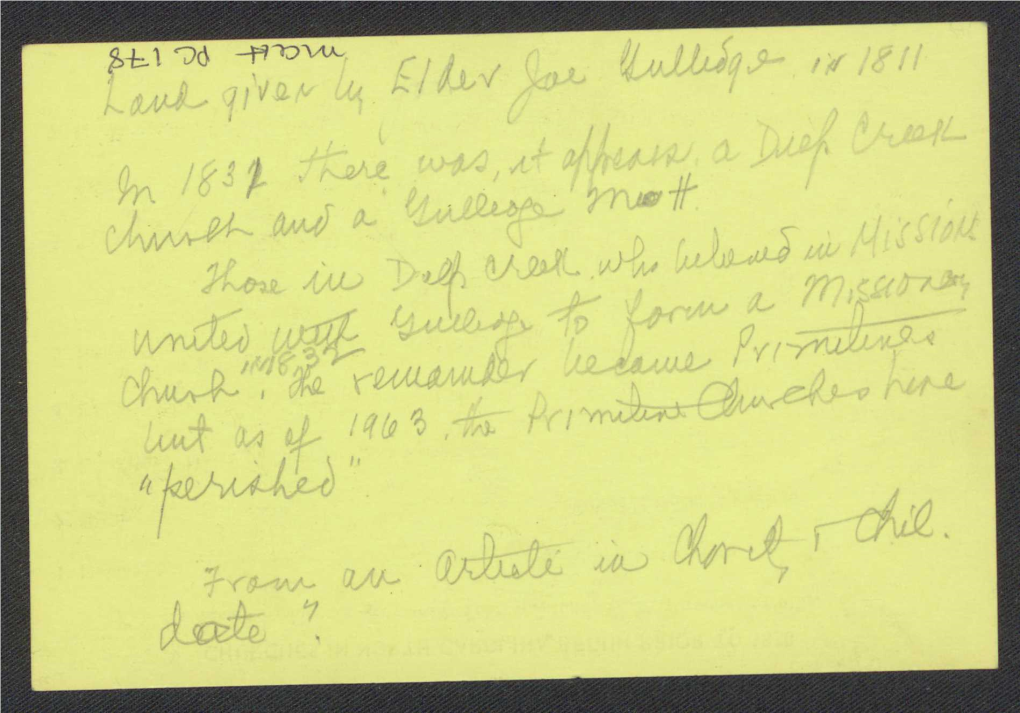 MCCH PC 178
Land given by Elder Joe Gulledge in 1811
In 1832 there was, it appears, a Deep Creek
church and a Gulledge M H
Those in Deep Creek who believed in Missions
united with Gulledge to form a Missionary
Church, in 1832 the remainder became Primitives
but as of 1963, the Primitive Churches here
"perished"
From an article in & Chil.
date?